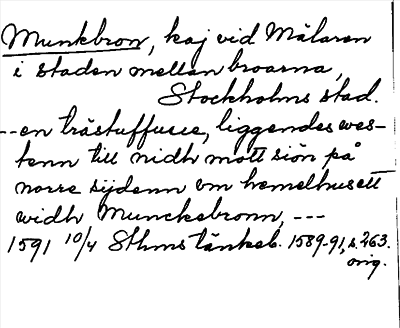 Munkbron, kaj vid Mälaren
i staden mellan broarna,
Stockholms stad.
--en trästuffuee, liggendes wes-
tenn till nidh mott siön på
norre sijdenn om hemelhusett
widh Munckebronn, ---
1591 10/4 Sthms tänkeb. 1589-91, s. 263.
orig.